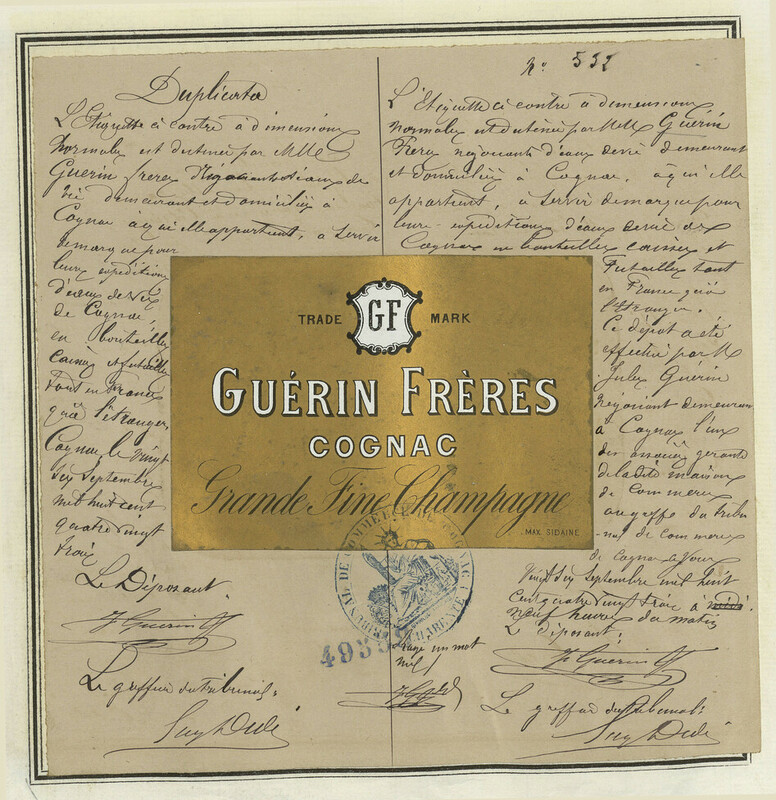 Duplicata
L'Etiquette ci contre à dimensions
Normales est destinée par MM
Guérin frères Négociants d'eaux de
vie demeurant et domiciliés à
Cognac à qui elle appartient, à servir
de marque pour
leurs expéditions
d'eaux de vie
de Cognac
en bouteilles
caisses et futailles
tant en France
qu'à l'étranger.
Cognac, le vingt
six Septembre
mil huit cent
quatre vingt
trois
Le Déposant
J Guerin
Le greffier du tribunal:
N° 532
L'Etiquette ci contre à dimensions
Normales est destinée par MM Guérin
Frères négociants d'eaux de vie demeurant
et domiciliés à Cognac, à qui elle
appartient, à servir de marque pour
leurs expéditions d'eaux de vie de
Cognac en bouteilles caisses et
Futailles tant
en France qu'à
l'étranger.
Ce dépot a été
effectué par M
Jules Guérin
Négociant demeurant
à Cognac l'un
des associés gérants
de la dite maison
de Commerce
au greffe du tribu
-nal de Commerce
de Cognac
Vingt six Septembre mil huit
cent quatre vingt trois à
neuf heures du matin
L déposant:
J Guerin
Le greffier du tribunal:
Rayé un mot
nul
TRADE GF MARK
GUÉRIN FRÈRES
COGNAC
Grande Fine Champagne
MAX. SIDAINE
TRIBUNAL DE COMMERCE DE COGNAC
CHARENTE